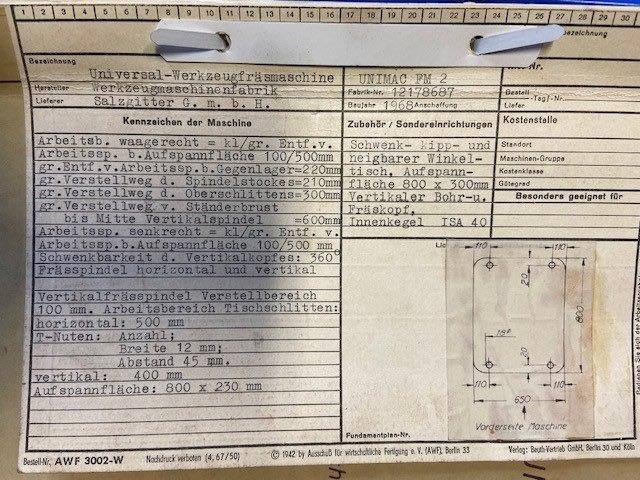 1 2 3 4 5 6 7 8 9 10 11 12 13 14 15 16 17 18 19 20 21 22 23 24 25 26 27 28 29 30
Bezeichnung
Universal-Werkzeugfräsmaschine
UNIMAC FM 2
Hersteller
Werkzeugmaschinenfabrik
Fabrik-Nr. 12178687
Bestell
Lieferer
Salzgitter G. m. b. H.
Baujahr 1968 Anschaffung
-Tag/-Nr.
Liefer
Kennzeichen der Maschine
Arbeitsb. waagerecht = kl/gr. Entf.v.
Arbeitssp. b.Aufspannfläche 100/500mm
gr.Entf.v.Arbeitssp.b.Gegenlager=220mm
gr.Verstellweg d. Spindelstockes=210mm
gr.Verstellweg d. Oberschlittens=300mm
gr.Verstellweg v. Ständerbrust
bis Mitte Vertikalspindel =600mm
Arbeitssp. senkrecht = kl/gr. Entf.v.
Arbeitssp.b.Aufspannfläche 100/500 mm
Schwenkbarkeit d. Vertikalkopfes: 360°
Frässpindel horizontal und vertikal
Vertikalfrässpindel Verstellbereich
100 mm. Arbeitsbereich Tischschlitten:
horizontal: 500 mm
T-Nuten: Anzahl;
Breite 12 mm;
Abstand 45 mm.
vertikal: 400 mm
Aufspannfläche: 800 x 230 mm
Zubehör / Sondereinrichtungen
Schwenk- kipp- und
neigbarer Winkel-
tisch, Aufspann-
fläche 800 x 300mm
Vertikaler Bohr-u.
Fräskopf,
Innenkegel ISA 40
Kostenstelle
Standort
Maschinen-Gruppe
Kostenklasse
Gütegrad
Besonders geeignet für
110
110
20
800
18ø
20
110
110
650
Vorderseite Maschine
Fundamentplan-Nr.
Bestell-Nr. AWF 3002-W
Nachdruck verboten (4, 67/50)
© 1942 by Ausschuß für wirtschaftliche Fertigung e. V. (AWF), Berlin 33
Verlag: Beuth-Vertrieb GmbH, Berlin 30 und Köln